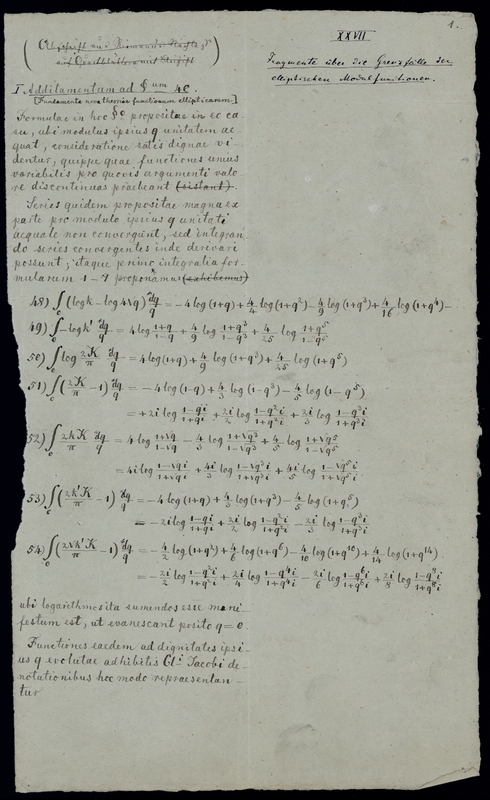 1.
XXVII
Fragmente über die Grenzfälle der
elliptischen Modulfunctionen.
(Abschrift aus Riemanns Nachlaß
auf Quartblättern mit Bleistift)
I Additamentum ad §um 40.
[Fundamenta nova theoriae functionum ellipticarum]
Formulae in hoc §o propositae in eo ca
su, ubi modulus ipsius q unitatem ae
quat, consideratione satis dignae vi-
dentur, quippe quae functiones unius
variabilis pro quovis argumenti valo
re discontinuas praebeant (sistant).
Series quidem propositae magna ex
parte pro modulo ipsius q unitati
aequale non convergunt, sed integran
do series convergentes inde derivari
possunt; itaque primo integralia for-
mularum 1-7 proponamus (exhibemus)
48) ∫₀ (log k - log 4√q) dq/q = -4 log(1+q) + 4/4 log(1+q²) - 4/9 log(1+q³) + 4/16 log(1+q⁴) -
49) ∫₀ -log k' dq/q = 4 log (1+q)/(1-q) + 4/9 log (1+q³)/(1-q³) + 4/25 log (1+q⁵)/(1-q⁵)
50) ∫₀ log 2K/π dq/q = 4 log(1+q) + 4/9 log(1+q³) + 4/25 log(1+q⁵)
51) ∫₀ (2K/π - 1) dq/q = -4 log(1-q) + 4/3 log(1-q³) - 4/5 log(1-q⁵)
= +2i log (1-qi)/(1+qi) + 2i/2 log (1-q²i)/(1+q²i) + 2i/3 log (1-q³i)/(1+q³i)
52) ∫₀ 2kK/π dq/q = 4 log (1+√q)/(1-√q) - 4/3 log (1+√q³)/(1-√q³) + 4/5 log (1+√q⁵)/(1-√q⁵)
= 4i log (1-√qi)/(1+√qi) + 4i/3 log (1-√q³i)/(1+√q³i) + 4i/5 log (1-√q⁵i)/(1+√q⁵i)
53) ∫₀ (2k'K/π - 1) dq/q = -4 log(1+q) + 4/3 log(1+q³) - 4/5 log(1+q⁵)
= -2i log (1-qi)/(1+qi) + 2i/2 log (1-q²i)/(1+q²i) - 2i/3 log (1-q³i)/(1+q³i)
54) ∫₀ (2√k'K/π - 1) dq/q = -4/2 log(1+q²) + 4/6 log(1+q⁶) - 4/10 log(1+q¹⁰) + 4/14 log(1+q¹⁴).
= -2i/2 log (1-q²i)/(1+q²i) + 2i/4 log (1-q⁴i)/(1+q⁴i) - 2i/6 log (1-q⁶i)/(1+q⁶i) + 2i/8 log (1-q⁸i)/(1+q⁸i)
ubi logarithmos ita sumendos esse mani
festum est, ut evanescant posito q = 0.
Functiones eaedem ad dignitates ipsi-
us q evolutae adhibitis Cl. Jacobi de-
notationibus hoc modo repraesentan-
tur